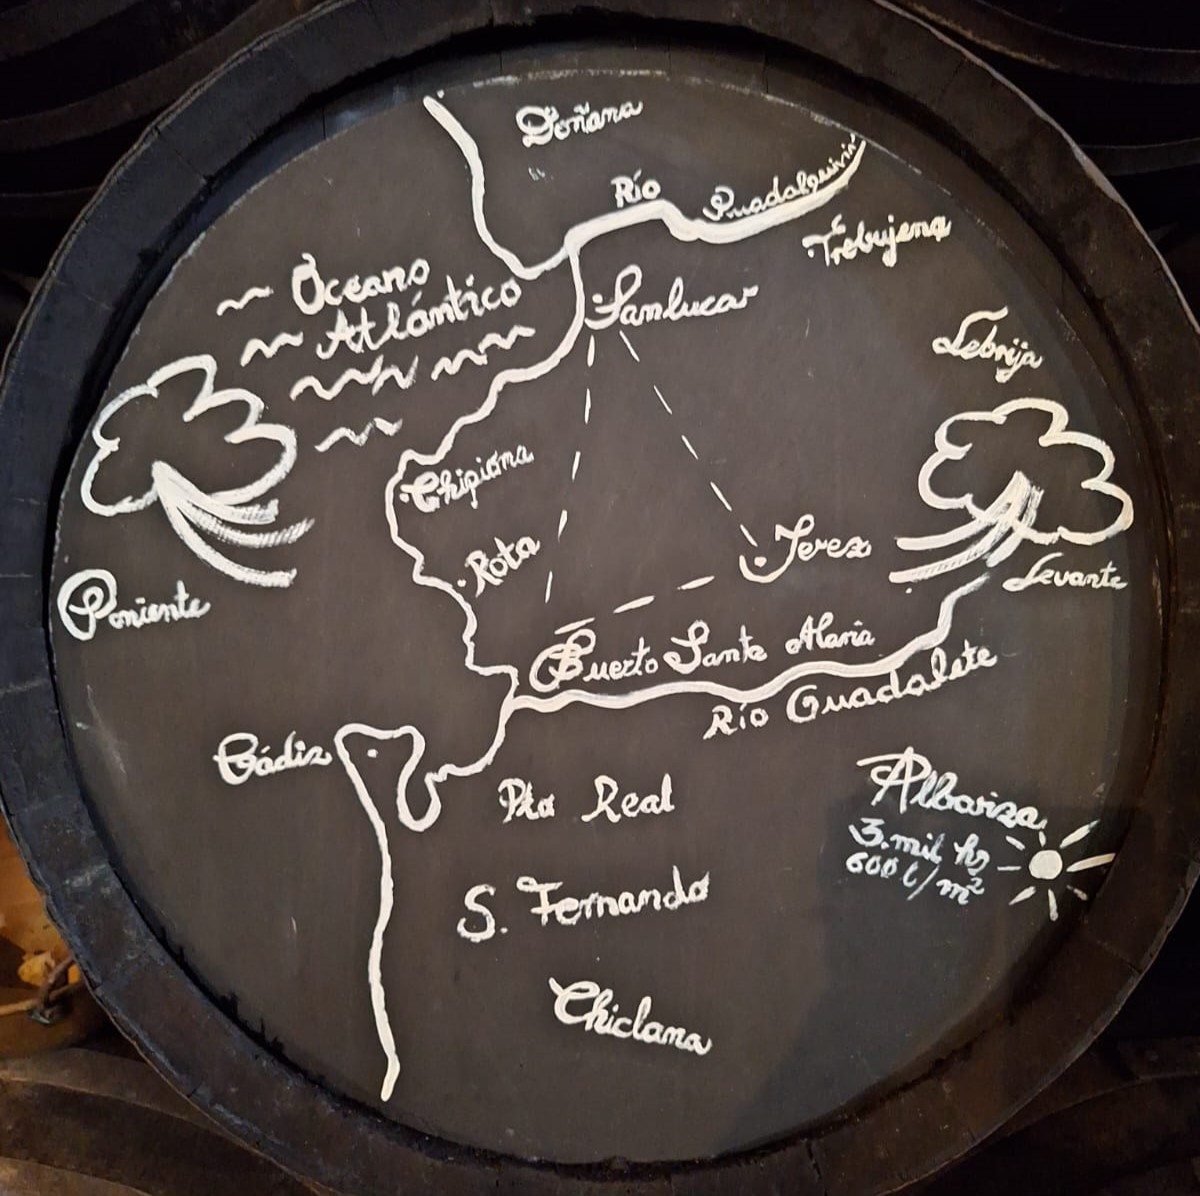 Doñana
Río Guadalquivir
Trebujena
Oceano
Atlántico
Sanlucar
Lebrija
Chipiona
Rota
Jerez
Levante
Poniente
Puerto Santa Maria
Río Guadalete
Cádiz
Pto Real
Albariza
3.mil hs
600 l/m²
S. Fernando
Chiclana